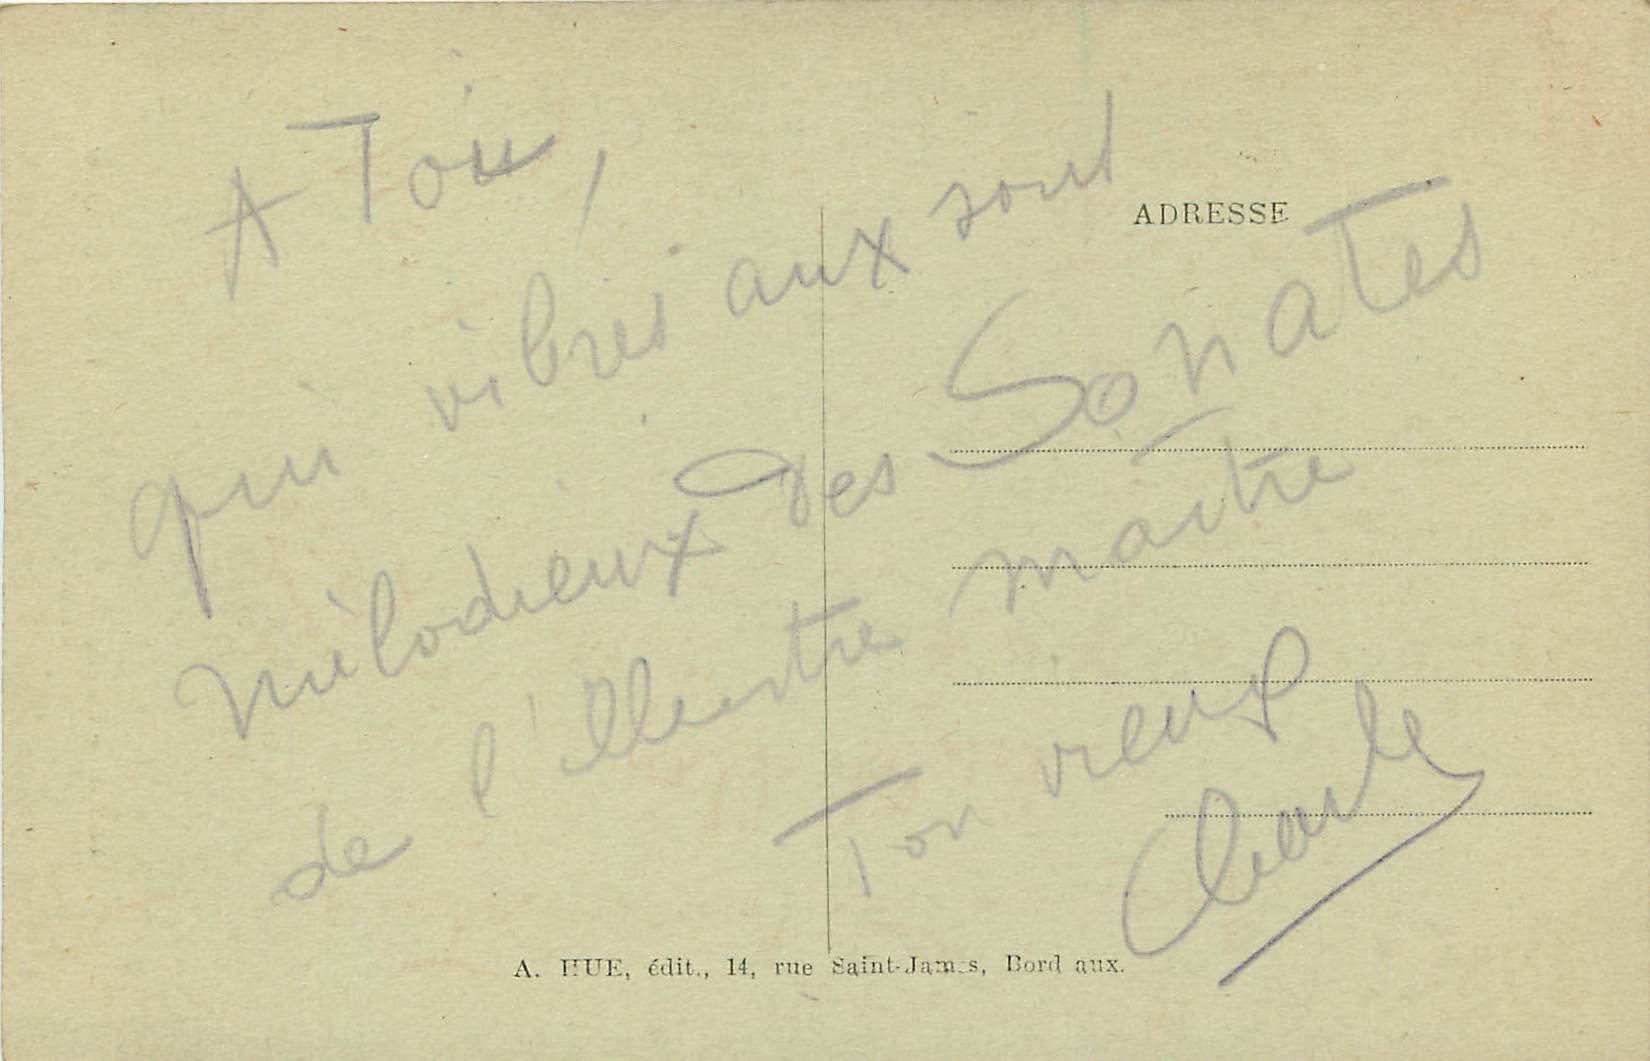 A Toi,
qui vibres aux sont
mélodieux des Sonates
de l'illustre maître
Ton vieux
Charle
ADRESSE
A. HUE, édit., 14, rue Saint-James, Bordeaux.